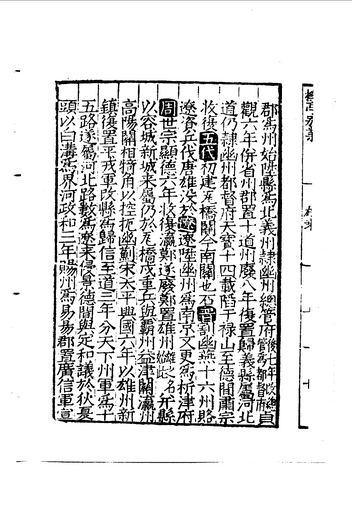 郡爲州始陞縣爲北義州隷幽州緫管府後七年改緫管爲都督府貞
觀六年併省州郡置十道州廢八年復置歸義縣屬河北
道仍隷幽州都督府天寶十四載陷于禄山至德間肅宗
收復五代初建瓦橋關今南關也石晋割幽燕十六州賂
遼資兵伐唐雄次入遼遼陞幽州爲南京又更爲析津府
周世宗顯德六年收復瀛鄚遂廢鄚置雄州雄之名并縣
以容城新城來屬仍於瓦橋戍重兵與霸州益津關瀛州
高陽關相犄角以控扼幽薊宋太平興國六年以雄州新
鎮復置平戎軍改縣爲歸信至道三年分天下州軍爲十
五路遂屬河北路數爲遼來侵景德間與定和議於伏夏
頭以白溝爲界河政和三年賜州爲易陽郡置廣信軍宣